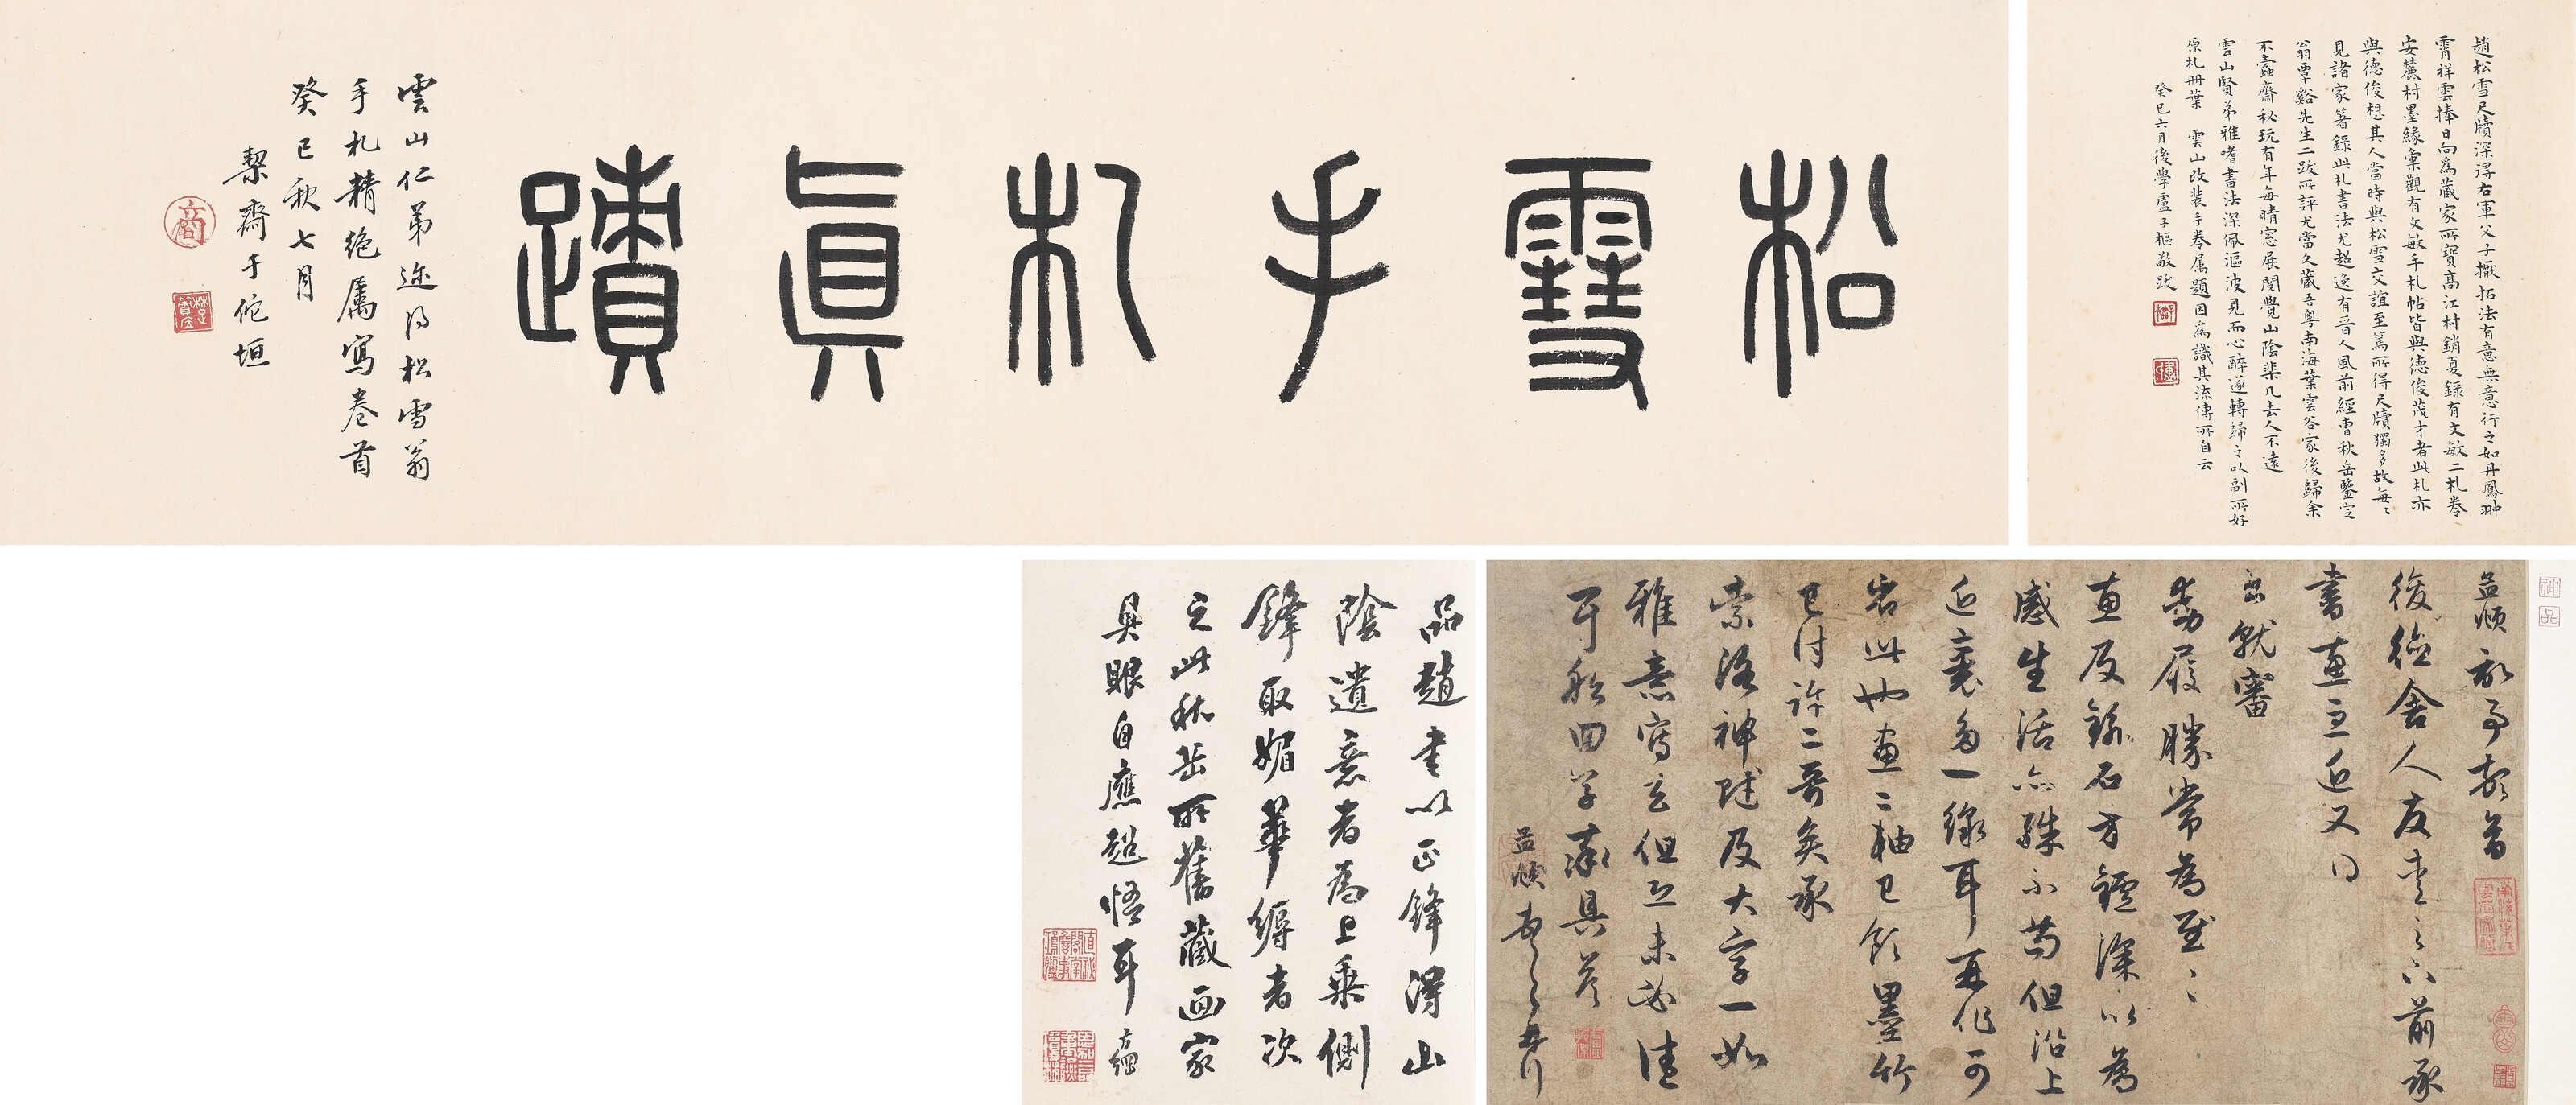 松雪手札眞蹟
雲山仁弟迩得松雪翁
手札精絶屬寫卷首
癸巳秋七月
栔齋于佗垣
趙松雪尺牘深得右軍父子擫拓法有意無意行之如丹鳳翀
霄祥雲捧日向為藏家所寶高江村銷夏錄有文敏二札卷
安麓村墨緣彙觀有文敏手札帖皆與德俊茂才者此札亦
與德俊想其人當時與松雪交誼至篤所得尺牘獨多故每々
見諸家著錄此札書法尤超逸有晉人風前經曹秋岳鑒定
翁覃谿先生二跋所評尤當久藏吾粵南海葉雲谷家後歸余
不蠹齋秘玩有年每晴窓展閱覺山陰棐几去人不遠
雲山賢弟雅嗜書法深佩漚波見而心醉遂轉歸之以副所好
原札冊葉 雲山改裝手卷属題因為識其流傳所自云
癸巳六月後學盧子樞敬跋
神品
孟頫敬事頓首
德俊舍人友愛足下前承
書惠之近又得
書就審
動履勝常為慰々
惠及銀石方鑪深以為
感生活亦殊不苟但沿上
近裏多一線耳再作可
岩此也畫二軸已領墨竹
已付許二哥矣承
索洛神賦及大字一如
雅意寫去但恐未必佳
耳船回草率具答
孟頫
品趙書以正鋒得山
陰遺意者為上乗側
鋒取媚華縟者次
之此秋岳所舊藏画家
具眼自應超悟耳 方綱